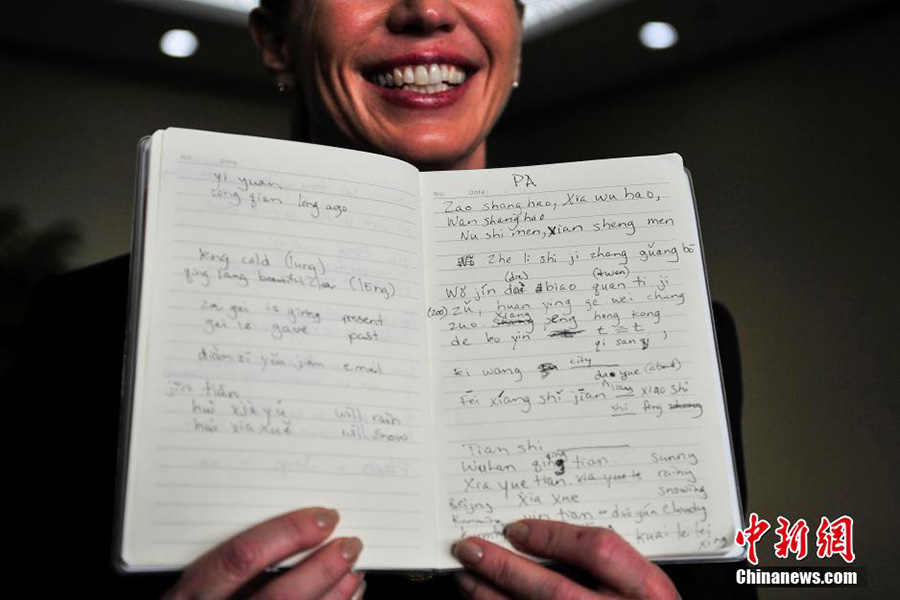 No: Date:
yi yuan
cong qian long ago
leng cold (lung)
qing lang beautiful clear (lōng)
za gei is giving present
gei le gave past
diàn zǐ yóu jiàn email
jīn tiān
hui xià yǔ will rain
hui xia xuě will snow
No: Date:
PA
Zao shang hao, Xia wu hao,
Wan shang hao
Nu shi men, xian sheng men
Zhe li shi ji zhang guǎng bō
Wǒ jīn dai biao quan ti ji
(zoo) zǔ, huan ying ge wei chung
zuo xiang hong kong
de bo yin
qi sang ;
ki wang city
duo yue (about)
Fēi xíang shí jiān liang xiao shi
shi feng
Tian shi
Wuhan qing tian sunny
Xia yue tian. xia yue te rainy
Beijng xia xue snowing
yin tian = duō yún cloudy
kuai le fei
xing
中新网
Chinanews.com